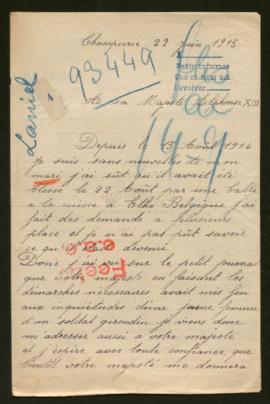 Champcerie 22 juin 1915
93449
Pedir informes
A sa Majesté Alphonse XIII
Laniel
Depuis le 15 Août 1914
je suis sans nouvelles de mon
mari j'ai sût qu'il avait été
blessé le 22 Août par une balle
a la cuisse à Belgique j'ai
fait des demande a plusieurs
place et je n'ai pas pût savoir
ce qu'il était devenu
Donc j'ai vu sur le petit journal
que votre majesté en faisant les
démarches nécessaires avait mis fin
aux inquiétudes d'une jeune femme
d'un soldat girondin je viens donc
m'adresser aussi a votre majesté
et j'espère avec toute confiance que
bientôt votre majesté me donnera